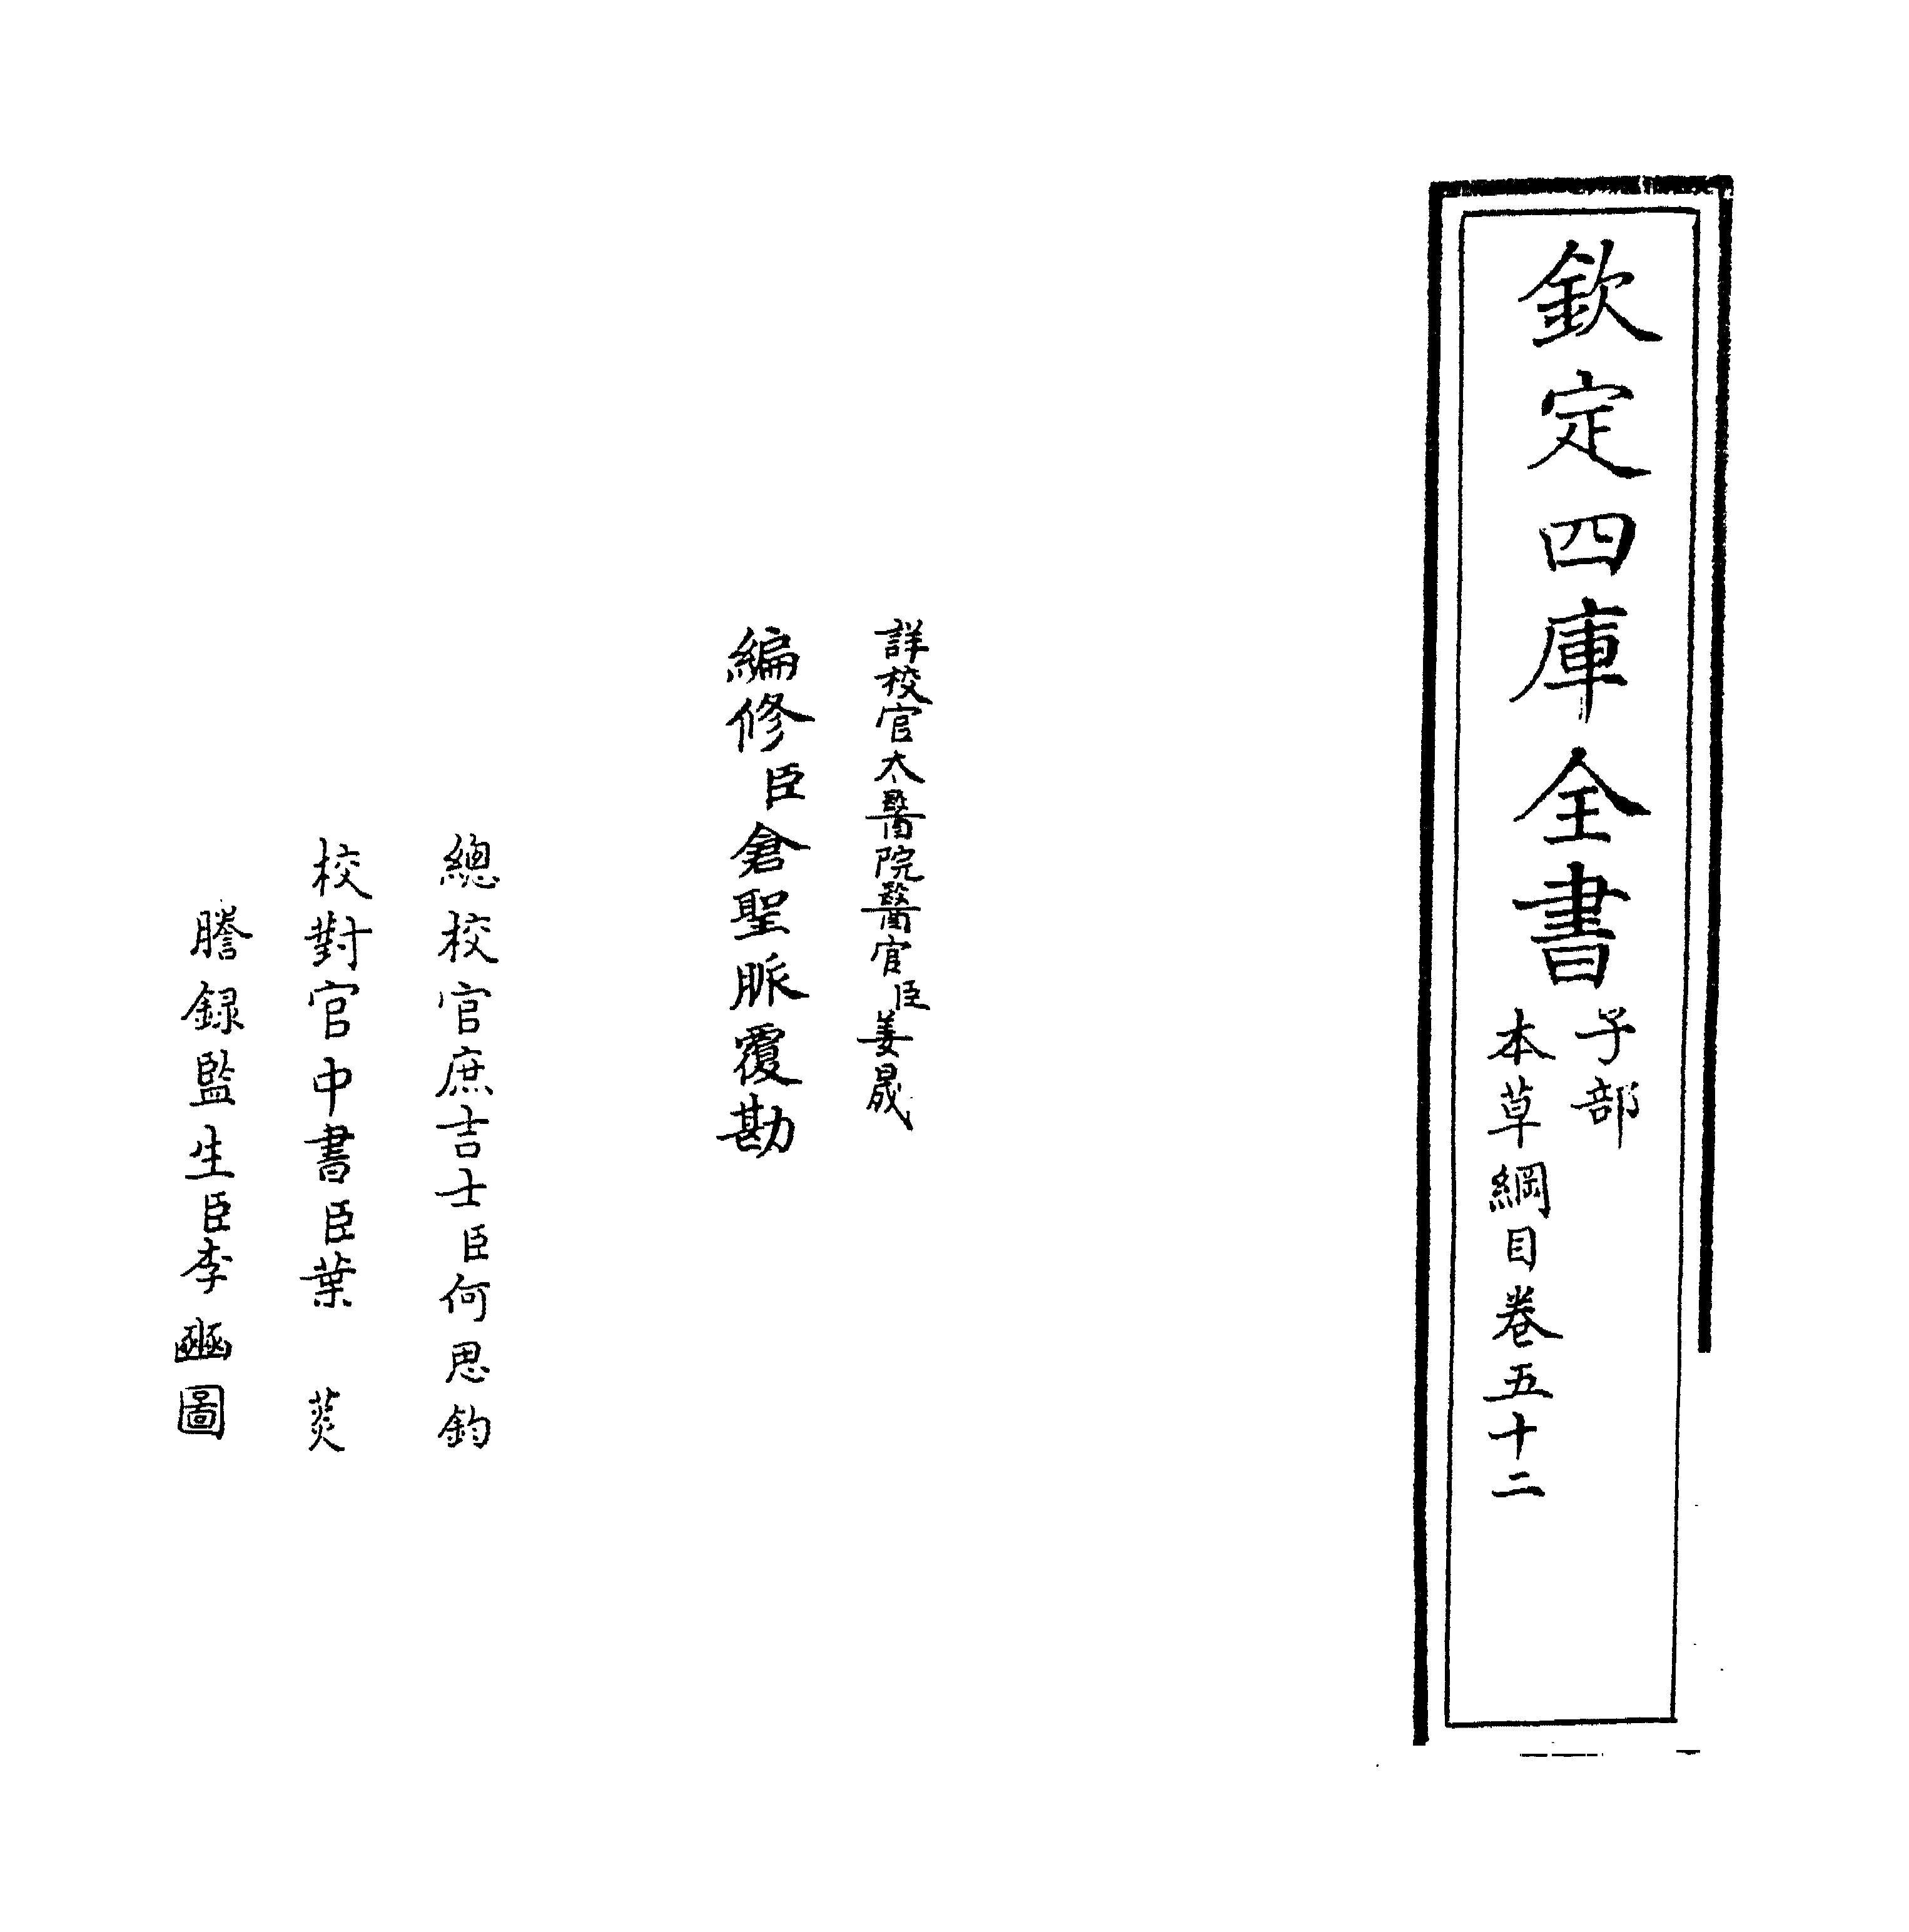 欽定四庫全書
子部
本草綱目卷五十二
詳校官太醫院醫官臣姜晟
編修臣倉聖脈覆勘
總校官庶吉士臣何思鈞
校對官中書臣葉　菼
謄録監生臣李豳圖